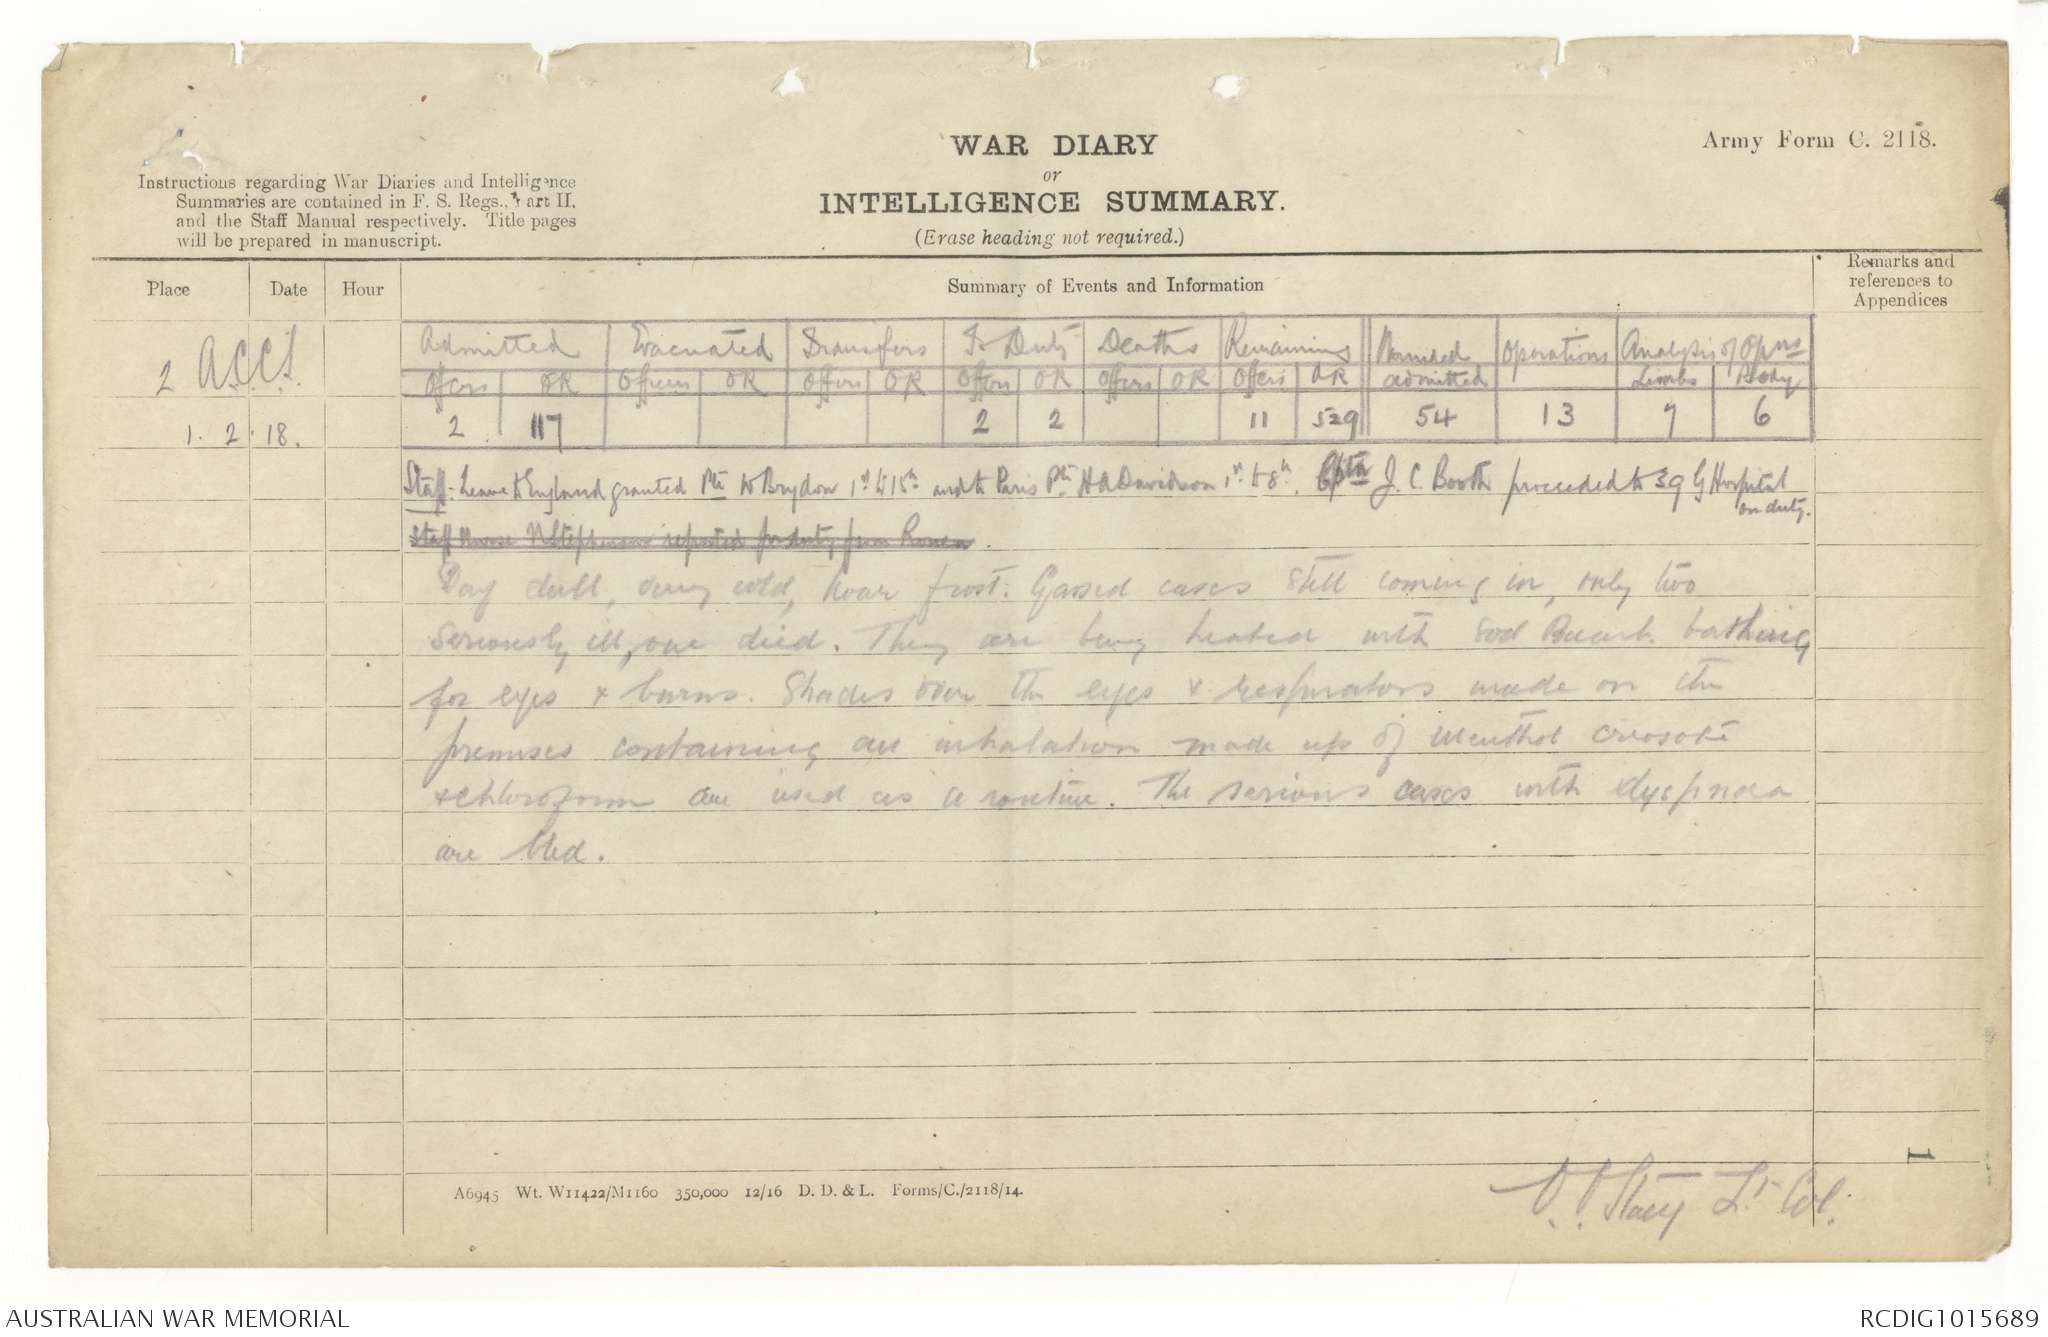 WAR DIARY
or
INTELLIGENCE SUMMARY.
(Erase heading not required.)
Army Form C. 2118.
Instructions regarding War Diaries and Intelligence
Summaries are contained in F. S. Regs., Part II,
and the Staff Manual respectively. Title pages
will be prepared in manuscript.
Place Date Hour Summary of Events and Information Remarks and references to Appendices
2 A.C.C.S.
1. 2. 18.
Admitted Evacuated Transfers To Duty Deaths Remaining Wounded admitted Operations Analysis of Opns
Offcrs OR Officers OR Offcrs OR Offcrs OR Offcrs OR Offcrs OR Limbs Body
2 117 2 2 11 529 54 13 7 6
Staff: Leave to England granted Pte W Brydon 1st to 15th and to Paris Pte H A Davidson 1st to 8th. Captn J. C. Booth proceeded to 39 G Hospital
on duty.
Staff Nurse N Stephenson reported for duty from Rouen.
Day dull, very cold, hoar frost. Gassed cases still coming in, only two
seriously ill, one died. They are being treated with Sod Bicarb. bathing
for eyes & burns. Shades over the eyes & respirators made on the
premises containing an inhalation made up of Menthol creosote
& chloroform are used as a routine. The serious cases with dyspnoea
are bled.
A6945 Wt. W11422/M1160 350,000 12/16 D. D. & L. Forms/C./2118/14.
V. Stacy Lt Col.
1
AUSTRALIAN WAR MEMORIAL
RCDIG1015689